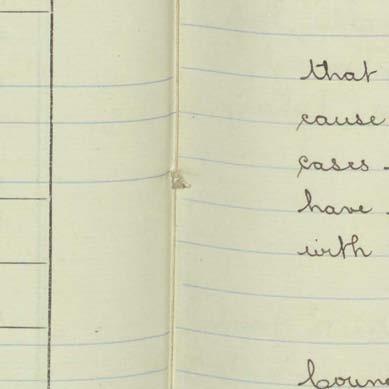 that
cause
cases -
have
with